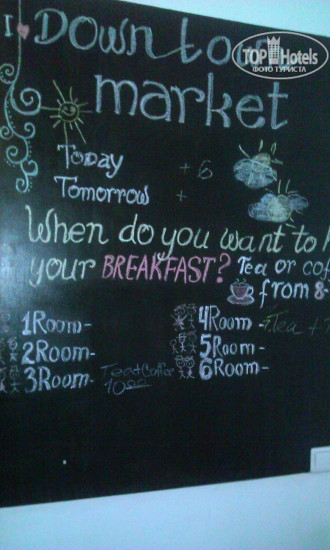 I Down town
TOP Hotels
ФОТО ТУРИСТА
market
Today +6
Tomorrow +
When do you want to
your BREAKFAST? Tea or cof
from 8-
1Room-
2Room-
3Room- Tea+Coffee
10:00
4Room - Tea +
5Room -
6Room-